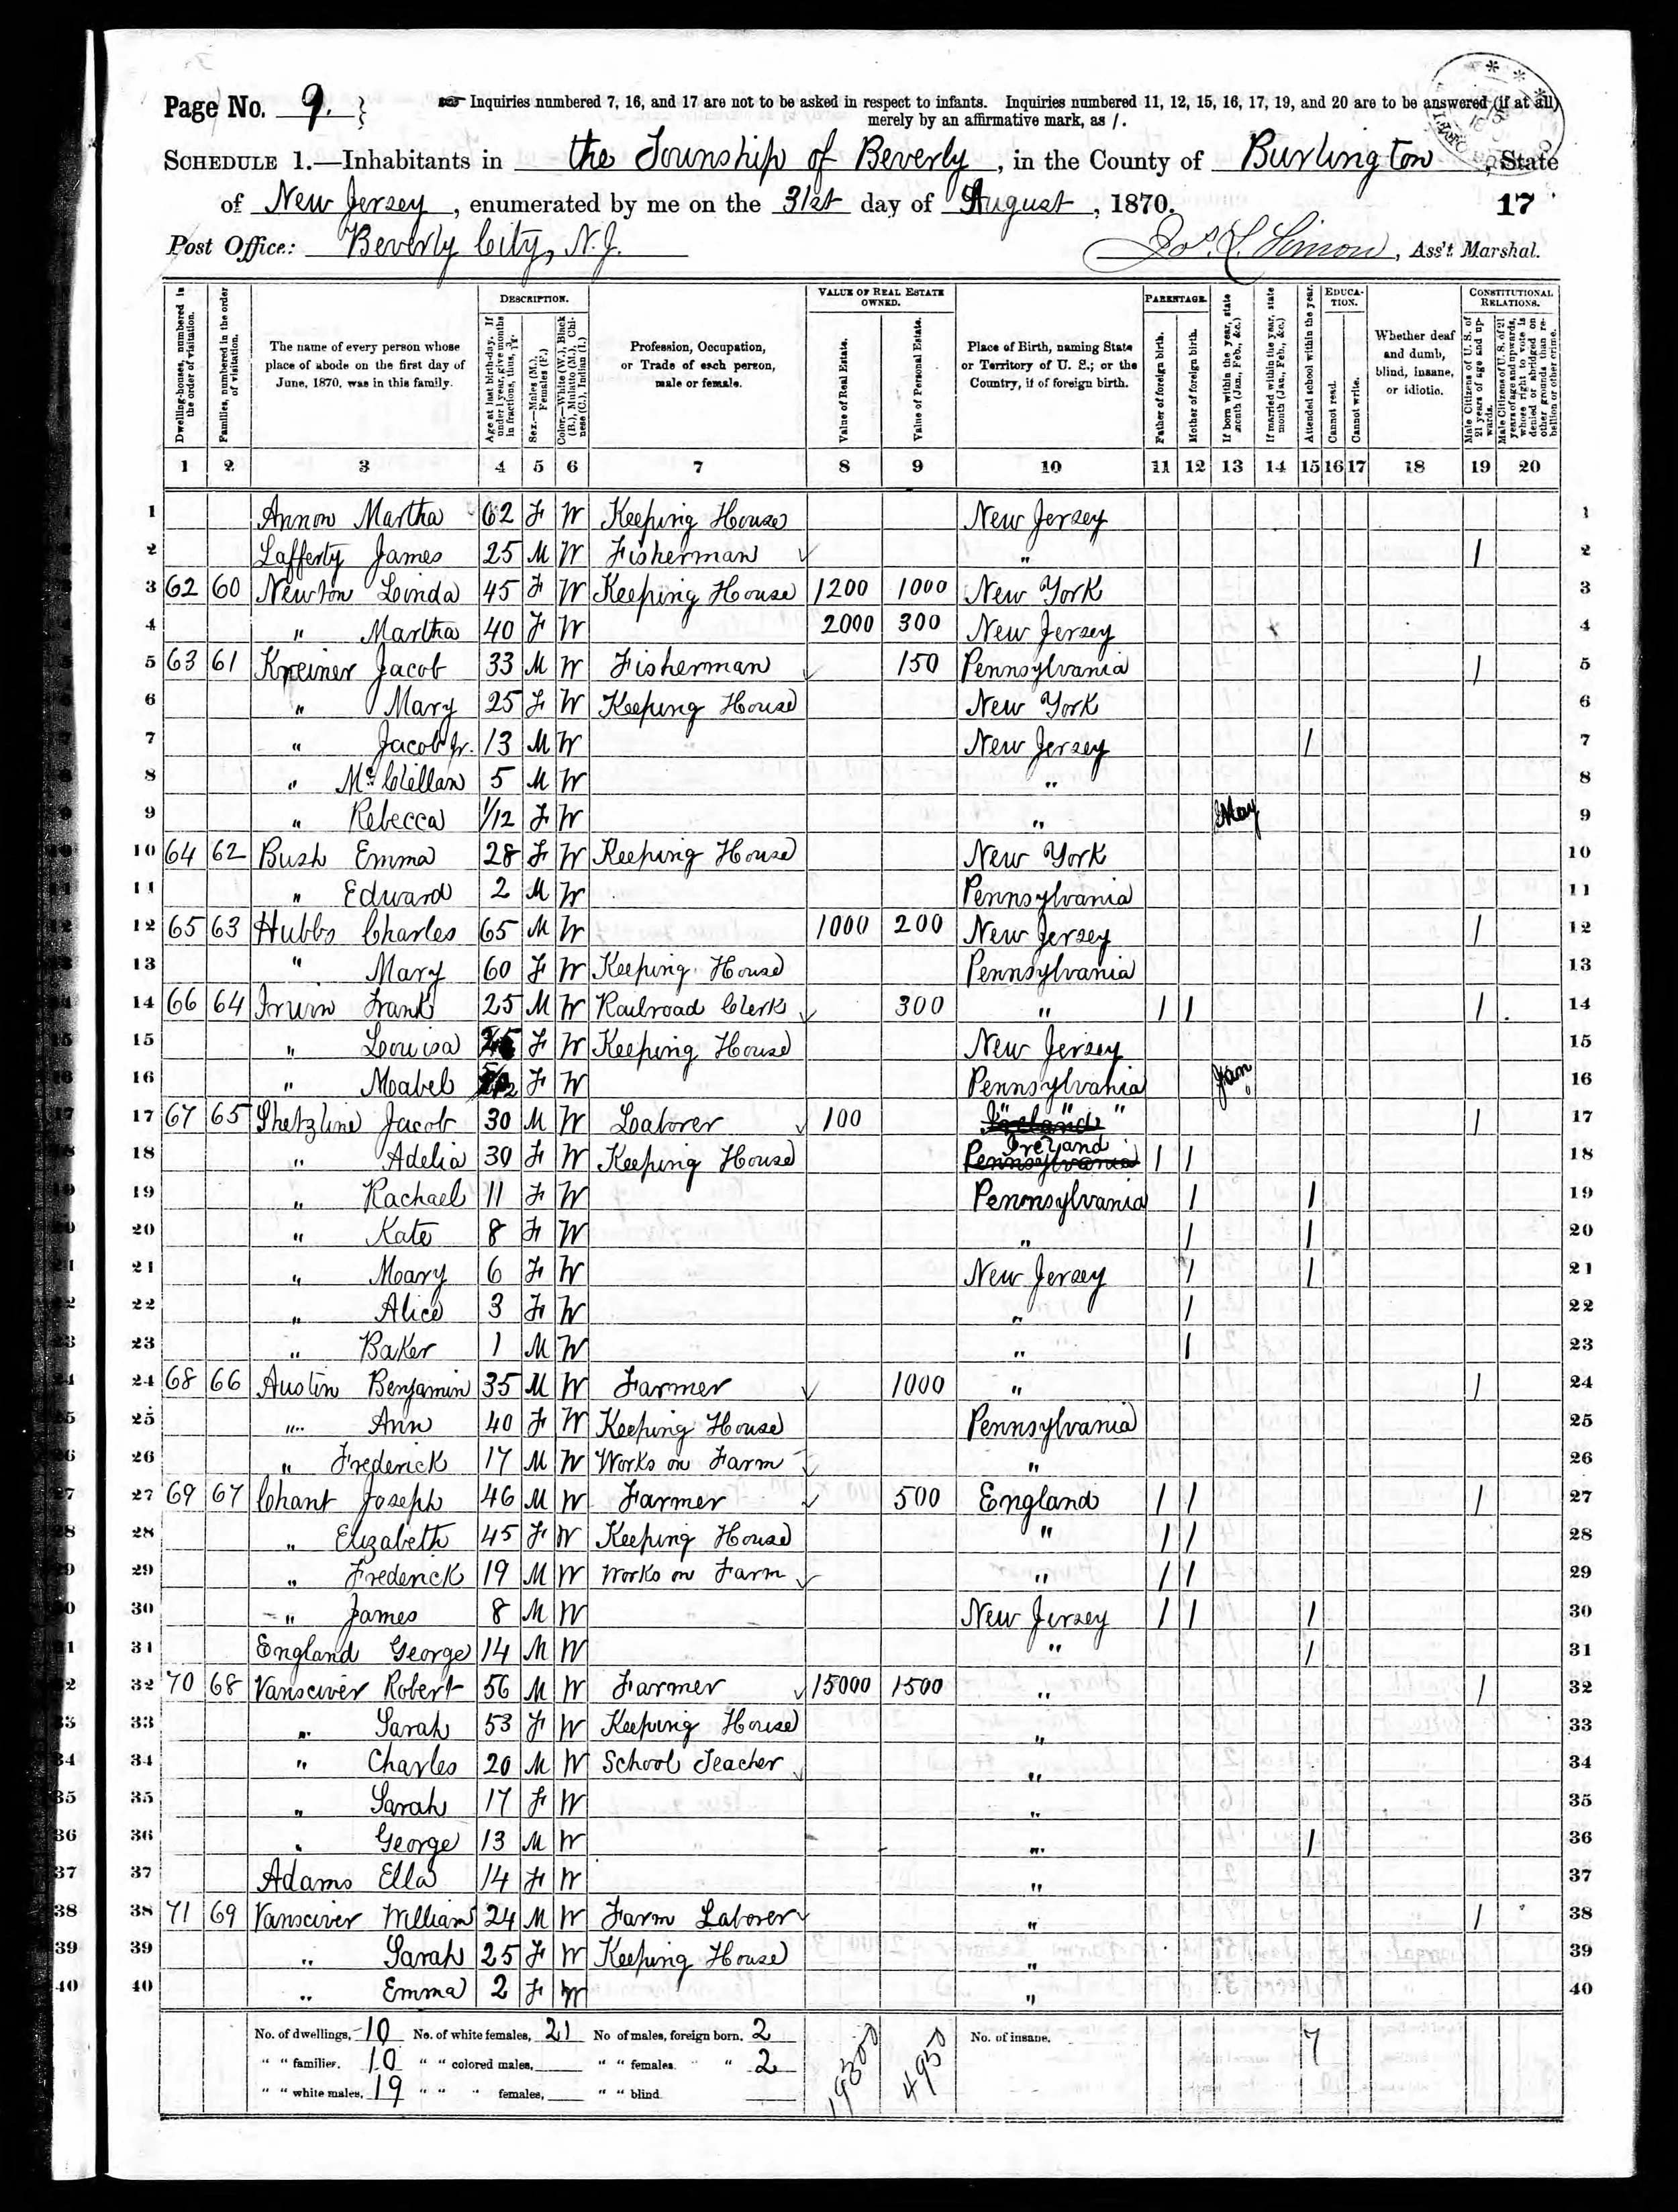 Page No. 9. } Inquiries numbered 7, 16, and 17 are not to be asked in respect to infants. Inquiries numbered 11, 12, 15, 16, 17, 19, and 20 are to be answered (if at all)
merely by an affirmative mark, as /.
SCHEDULE 1.—Inhabitants in the Township of Beverly, in the County of Burlington, State
of New Jersey, enumerated by me on the 31st day of August, 1870. 17
Post Office: Beverly City, N.J. Ass't. Marshal.
Dwelling-houses, numbered in the order of visitation.
Families, numbered in the order of visitation.
The name of every person whose place of abode on the first day of June, 1870, was in this family.
DESCRIPTION.
Age at last birth-day. If under 1 year, give months in fractions, thus, 3/12.
Sex.—Males (M.), Females (F.)
Color.—White (W.), Black (B.), Mulatto (M.), Chinese (C.), Indian (I.)
Profession, Occupation, or Trade of each person, male or female.
VALUE OF REAL ESTATE OWNED.
Value of Real Estate.
Value of Personal Estate.
Place of Birth, naming State or Territory of U. S.; or the Country, if of foreign birth.
PARENTAGE.
Father of foreign birth.
Mother of foreign birth.
If born within the year, state month (Jan., Feb., &c.)
If married within the year, state month (Jan., Feb., &c.)
Attended school within the year.
EDUCATION.
Cannot read.
Cannot write.
Whether deaf and dumb, blind, insane, or idiotic.
CONSTITUTIONAL RELATIONS.
Male Citizens of U. S. of 21 years of age and upwards.
Male Citizens of U. S. of 21 years of age and upwards, whose right to vote is denied or abridged on other grounds than rebellion or other crime.
1 2 3 4 5 6 7 8 9 10 11 12 13 14 15 16 17 18 19 20
1 Annon Martha 62 F W Keeping House New Jersey 1
2 Lafferty James 25 M W Fisherman " / 2
3 62 60 Newton Linda 45 F W Keeping House 1200 1000 New York 3
4 " Martha 40 F W 2000 300 New Jersey 4
5 63 61 Kreiner Jacob 33 M W Fisherman 150 Pennsylvania / 5
6 " Mary 25 F W Keeping House New York 6
7 " Jacob Jr. 13 M W New Jersey / 7
8 " McClellan 5 M W " 8
9 " Rebecca 1/12 F W " May 9
10 64 62 Bush Emma 28 F W Keeping House New York 10
11 " Edward 2 M W Pennsylvania 11
12 65 63 Hubbs Charles 65 M W 1000 200 New Jersey / 12
13 " Mary 60 F W Keeping House Pennsylvania 13
14 66 64 Irwin Frank 25 M W Railroad Clerk 300 " / / / 14
15 " Louisa F W Keeping House New Jersey 15
16 " Mabel F W Pennsylvania Jan 16
17 67 65 Shetzline Jacob 30 M W Laborer 100 " " " Ireland / 17
18 " Adelia 30 F W Keeping House Ireland Pennsylvania / / 18
19 " Rachael 11 F W Pennsylvania / / 19
20 " Kate 8 F W " / / 20
21 " Mary 6 F W New Jersey / / 21
22 " Alice 3 F W " / 22
23 " Baker 1 M W " / 23
24 68 66 Austin Benjamin 35 M W Farmer 1000 " / 24
25 " Ann 40 F W Keeping House Pennsylvania 25
26 " Frederick 17 M W Works on Farm " 26
27 69 67 Chant Joseph 46 M W Farmer 500 England / / / 27
28 " Elizabeth 45 F W Keeping House " / / 28
29 " Frederick 19 M W Works on Farm " / / 29
30 " James 8 M W New Jersey / / / 30
31 England George 14 M W " / 31
32 70 68 Vansciver Robert 56 M W Farmer 15000 1500 " / 32
33 " Sarah 53 F W Keeping House " 33
34 " Charles 20 M W School Teacher " 34
35 " Sarah 17 F W " 35
36 " George 13 M W " / 36
37 Adams Ella 14 F W " 37
38 71 69 Vansciver William 24 M W Farm Laborer " / 38
39 " Sarah 25 F W Keeping House " 39
40 " Emma 2 F W " 40
No. of dwellings, 10 No. of white females, 21 No of males, foreign born, 2 19300 4950 No. of insane. 7
" " families, 10 " " colored males, " " females, " " 2
" " white males, 19 " " " females, " " blind